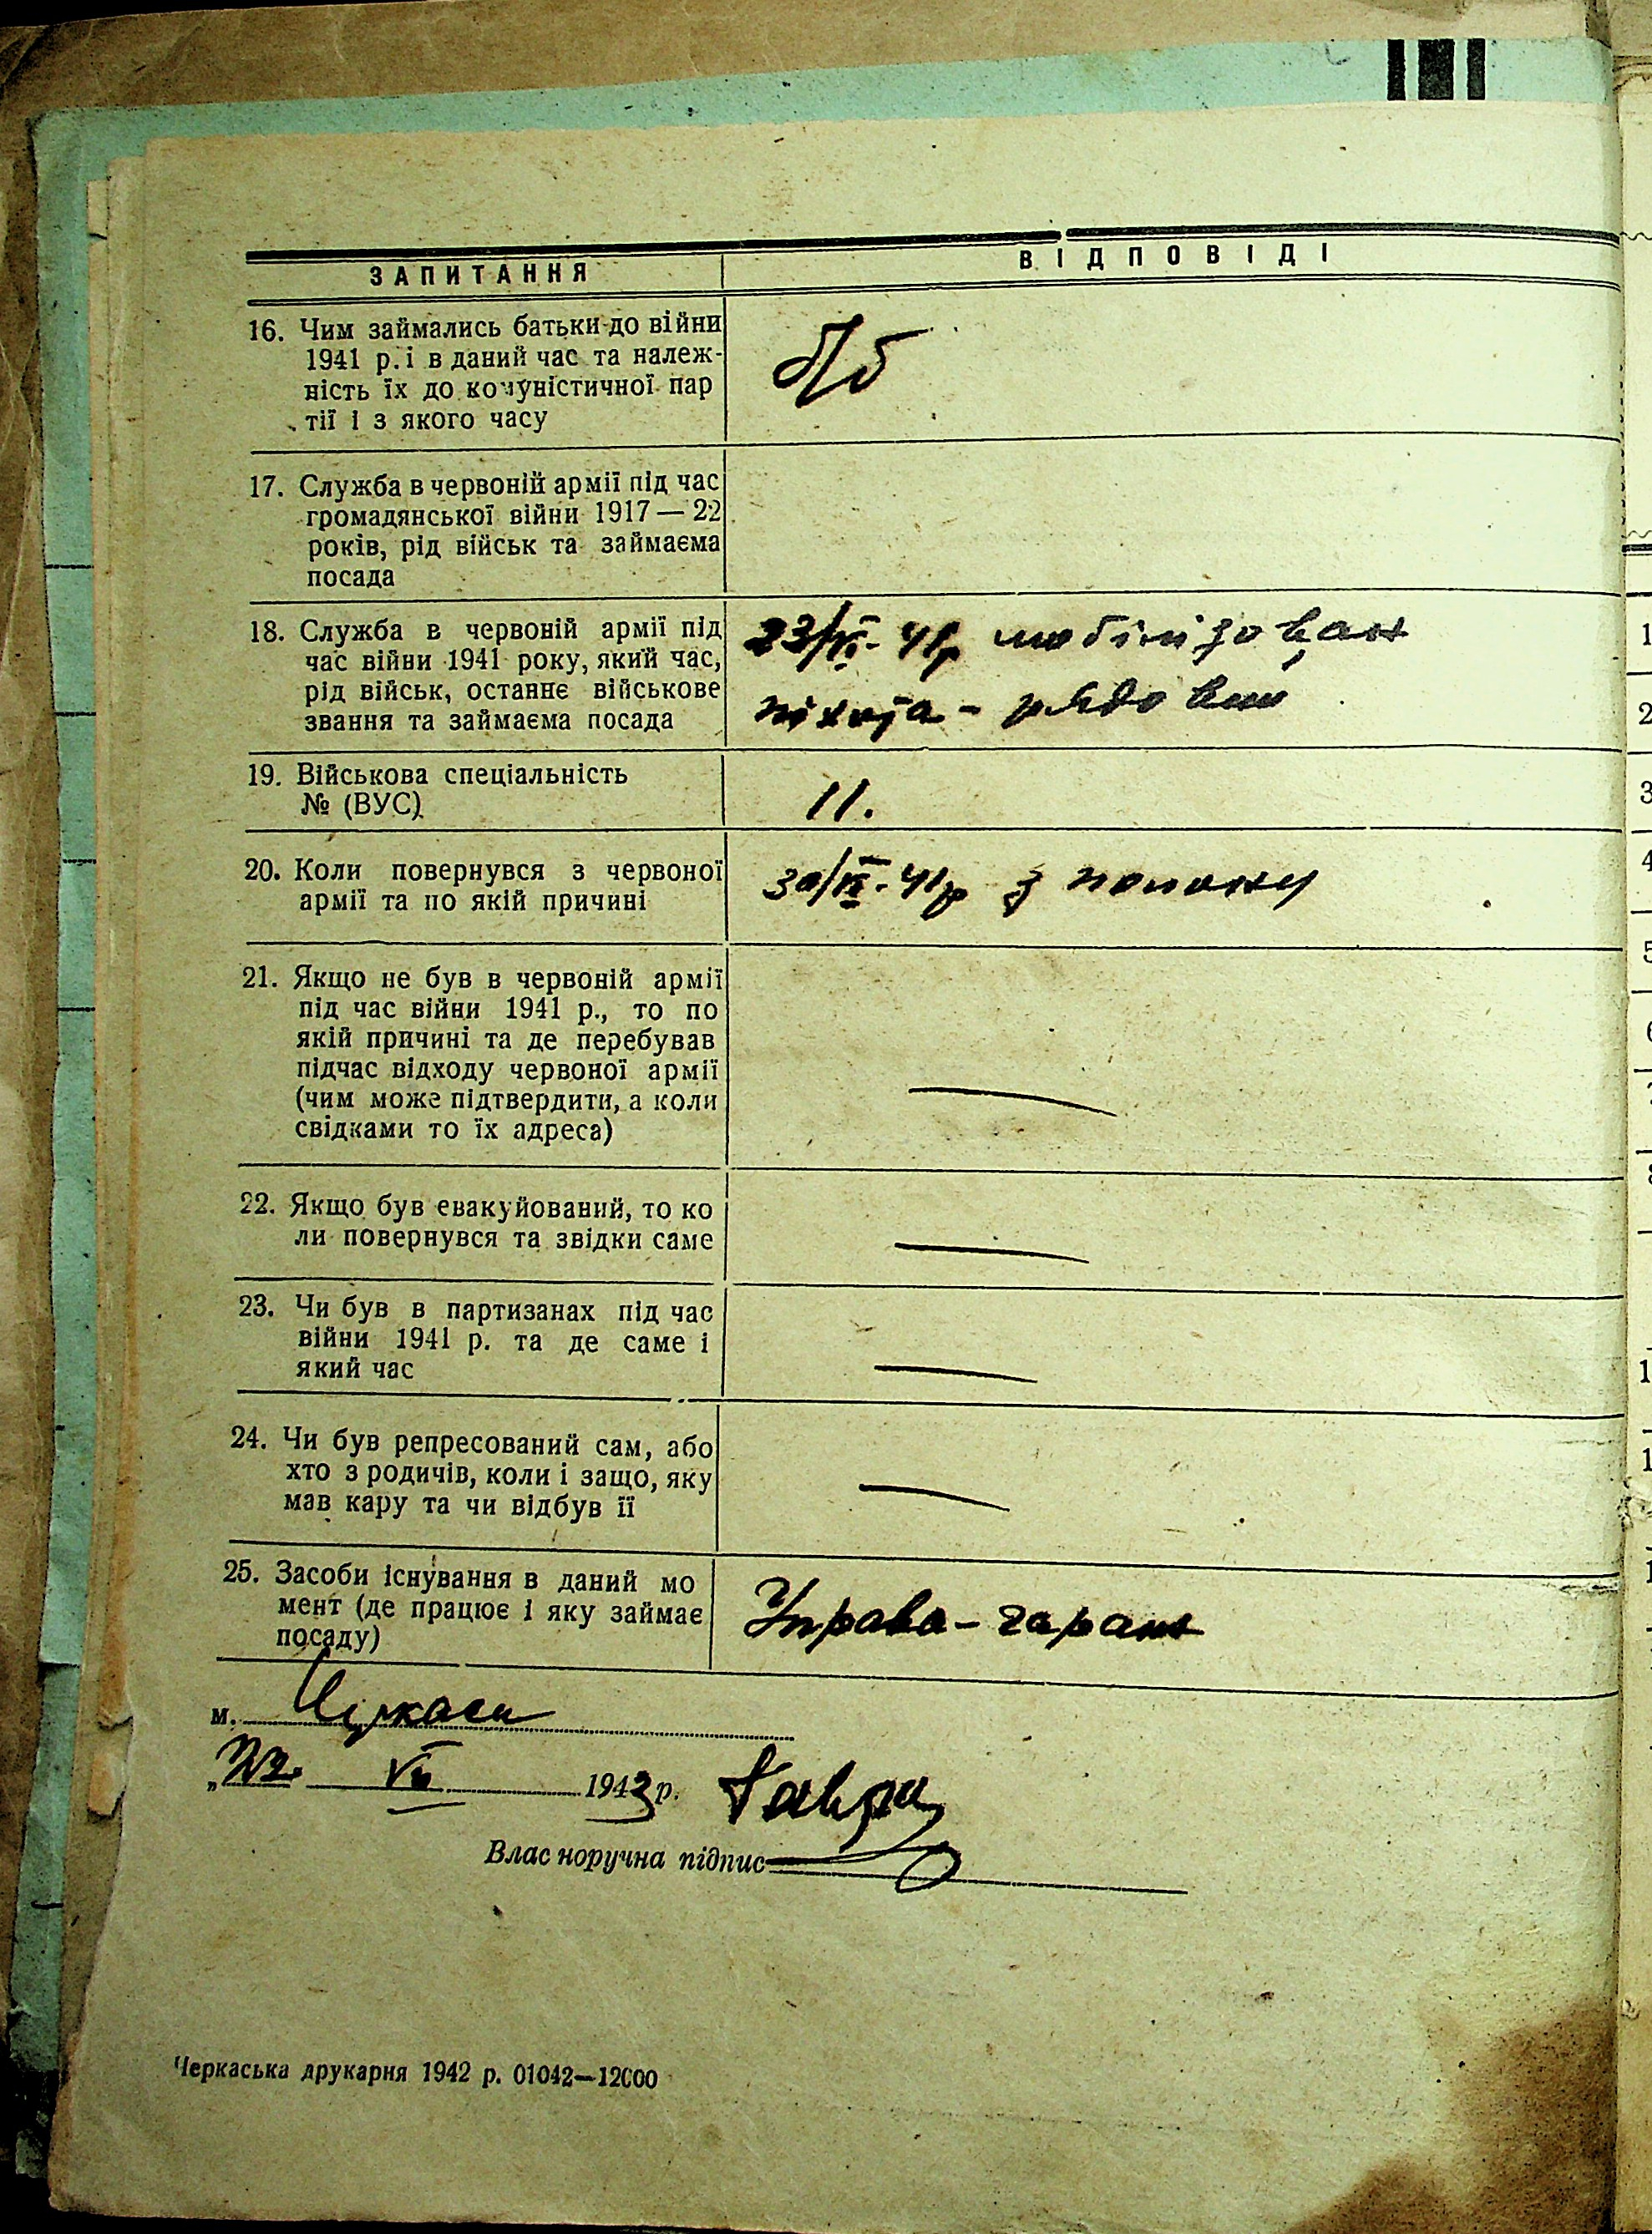 ЗАПИТАННЯ
ВІДПОВІДІ
16. Чим займались батьки до війни
1941 р. і в даний час та належ-
ність їх до комуністичної пар
тії і з якого часу
б/б
17. Служба в червоній армії під час
громадянської війни 1917 — 22
років, рід військ та займаєма
посада
18. Служба в червоній армії під
час війни 1941 року, який час,
рід військ, останнє військове
звання та займаєма посада
41р мобілізован
піхота - рядовий
19. Військова спеціальність
№ (ВУС)
11.
20. Коли повернувся з червоної
армії та по якій причині
30/IX-41р з полону
21. Якщо не був в червоній армії
під час війни 1941 р., то по
якій причині та де перебував
підчас відходу червоної армії
(чим може підтвердити, а коли
свідками то їх адреса)
—
22. Якщо був евакуйований, то ко
ли повернувся та звідки саме
—
23. Чи був в партизанах під час
війни 1941 р. та де саме і
який час
—
24. Чи був репресований сам, або
хто з родичів, коли і защо, яку
мав кару та чи відбув її
—
25. Засоби існування в даний мо
мент (де працює і яку займає
посаду)
Управа - гараж
м. Черкаси
„22 VII 1943 р.
Влас норучна підпис
Черкаська друкарня 1942 р. 01042—12000
1
2
3
4
5